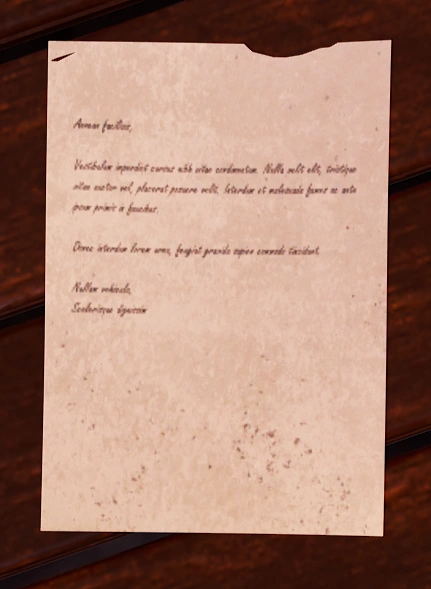 Aenean facilisis,
Vestibulum imperdiet cursus nibh vitae condimentum. Nulla velit elit, tristique
vitae auctor vel, placerat posuere velit. Interdum et malesuada fames ac ante
ipsum primis in faucibus.
Donec interdum lorem urna, feugiat gravida sapien commodo tincidunt.
Nullam vehicula,
Scelerisque dignissim